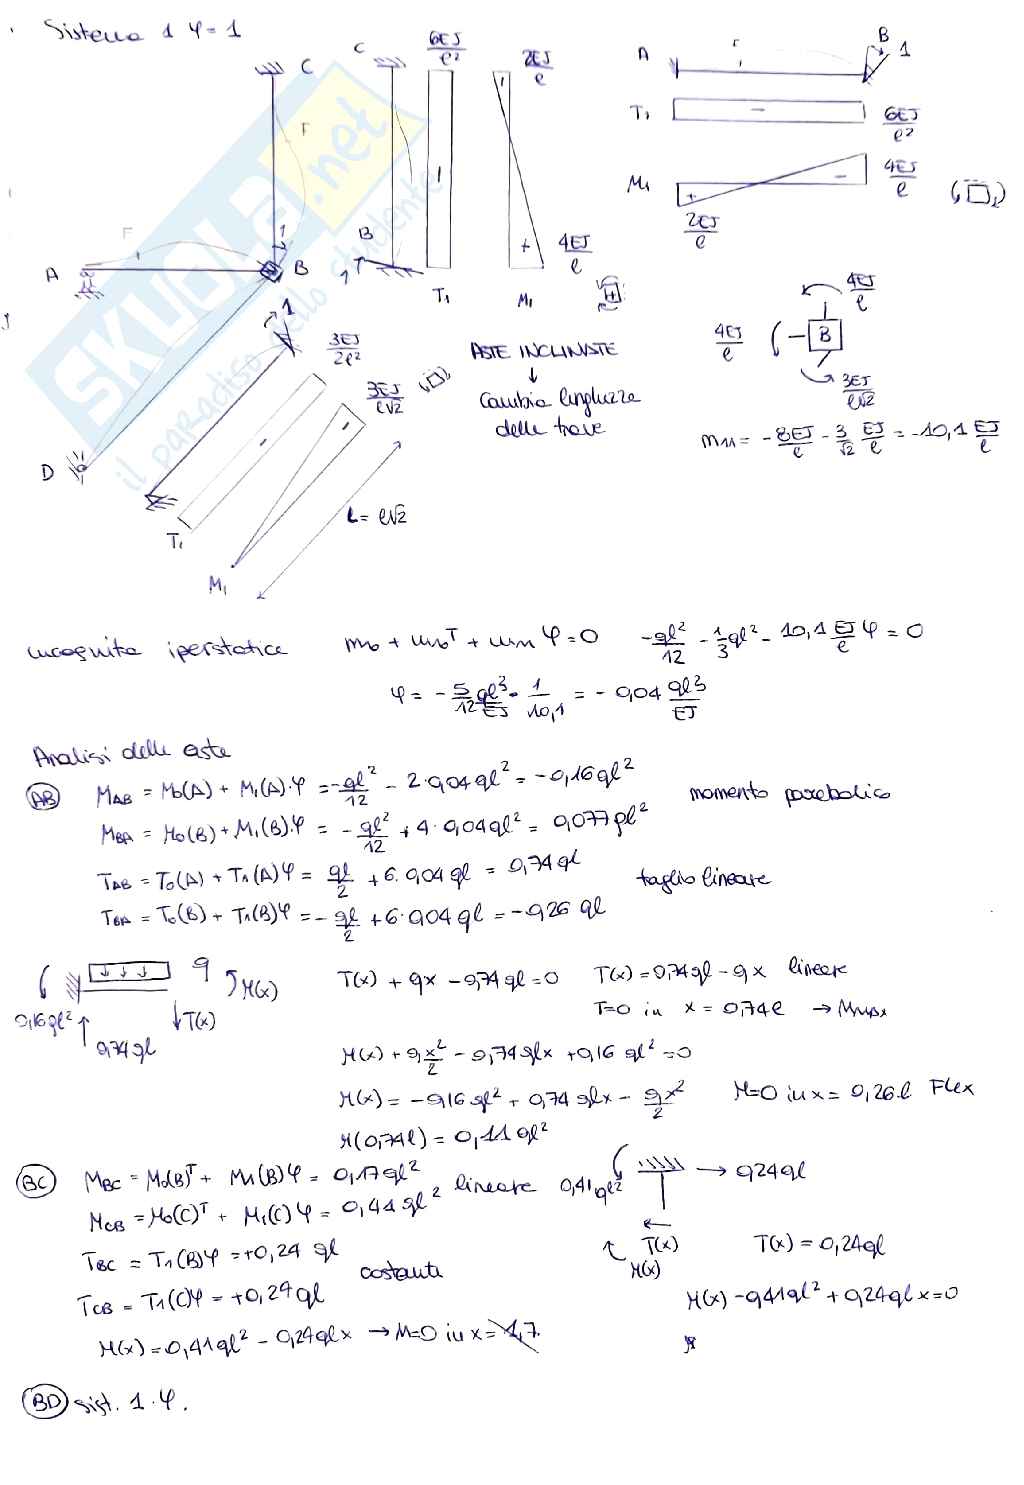 Sistema 1 φ = 1
C
F
A
F
1
B
D
C
B
1
6EJ/ℓ²
2EJ/ℓ
4EJ/ℓ
T₁
M₁
A
F
B
1
T₁
6EJ/ℓ²
M₁
4EJ/ℓ
2EJ/ℓ
1
3EJ/2ℓ²
3EJ/ℓ√2
T₁
M₁
L = ℓ√2
ASTE INCLINATE
↓
Cambia lunghezza
delle trave
4EJ/ℓ
4EJ/ℓ
B
3EJ/ℓ√2
m₁₁ = -8EJ/ℓ - 3/√2 EJ/ℓ = -10,1 EJ/ℓ
SKUOLA.net
il paradiso dello studente
incognita iperstatica m₀ + m₀ᵀ + m₁₁ φ = 0 -qℓ²/12 - 1/3 qℓ² - 10,1 EJ/ℓ φ = 0
φ = - 5/12 qℓ³/EJ · 1/10,1 = - 0,04 qℓ³/EJ
Analisi delle aste
AB M_AB = M₀(A) + M₁(A)·φ = -qℓ²/12 - 2·0,04qℓ² = -0,16qℓ²
momento parabolico
M_BA = M₀(B) + M₁(B)·φ = -qℓ²/12 + 4·0,04qℓ² = 0,077qℓ²
T_AB = T₀(A) + T₁(A)φ = qℓ/2 + 6·0,04qℓ = 0,74qℓ
taglio lineare
T_BA = T₀(B) + T₁(B)φ = -qℓ/2 + 6·0,04qℓ = -0,26qℓ
q
M(x)
0,16qℓ²
T(x)
0,74qℓ
T(x) + qx - 0,74qℓ = 0 T(x) = 0,74qℓ - qx lineare
T=0 in x = 0,74ℓ → Mmax
M(x) + qx²/2 - 0,74qℓx + 0,16qℓ² = 0
M(x) = -0,16qℓ² + 0,74qℓx - qx²/2 M=0 in x = 0,26ℓ Flex
M(0,74ℓ) = 0,11qℓ²
BC M_BC = M₀(B)ᵀ + M₁(B)φ = 0,17qℓ²
lineare
M_CB = M₀(C)ᵀ + M₁(C)φ = 0,41qℓ²
T_BC = T₁(B)φ = +0,24 qℓ
costante
T_CB = T₁(C)φ = +0,24qℓ
M(x) = 0,41qℓ² - 0,24qℓx → M=0 in x = 1,7
0,41qℓ²
0,24qℓ
T(x)
M(x)
T(x) = 0,24qℓ
M(x) - 0,41qℓ² + 0,24qℓx = 0
BD sist. 1·φ.